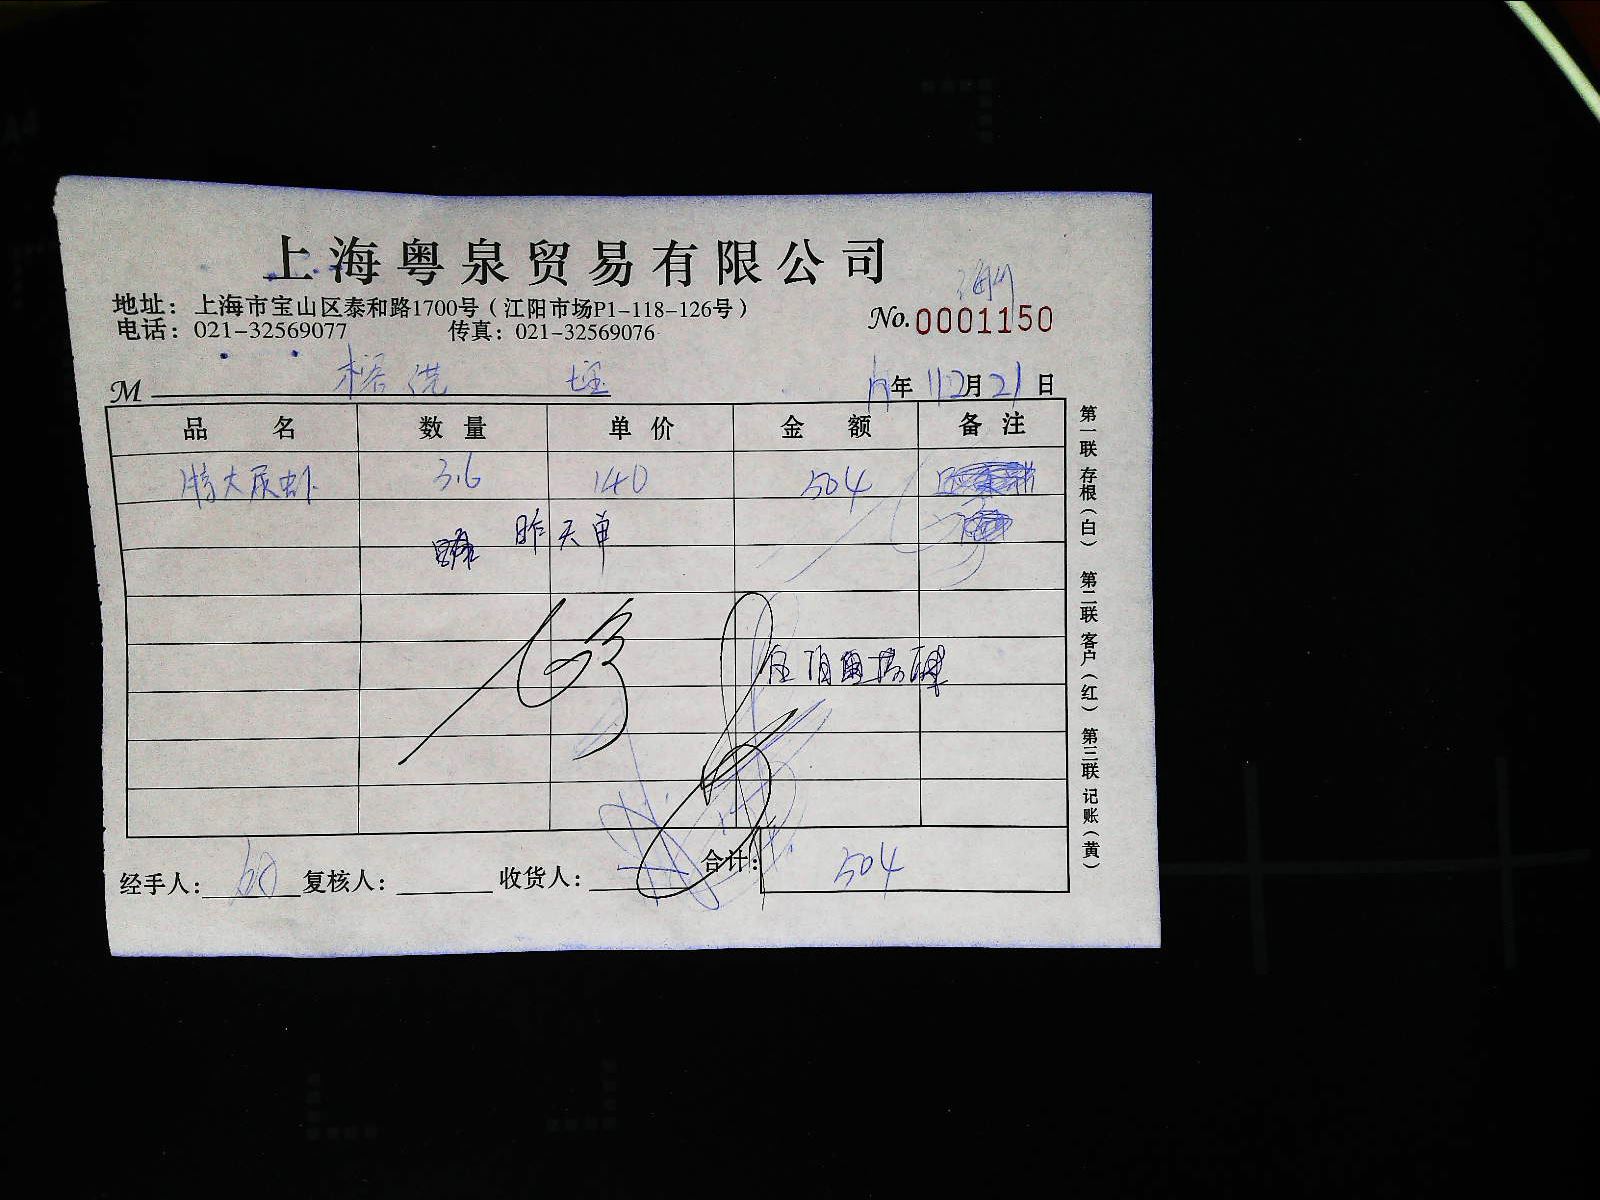 上海粤泉贸易有限公司
地址：上海市宝山区泰和路1700号（江阳市场P1-118-126号）
No.0001150
电话：021-32569077 传真：021-32569076
M 年 12月21日
品名 数量 单价 金额 备注
特大尿虾 3.6 140 504
昨天单
经手人： 复核人： 收货人： 合计： 504
第一联 存根（白） 第二联 客户（红） 第三联 记账（黄）